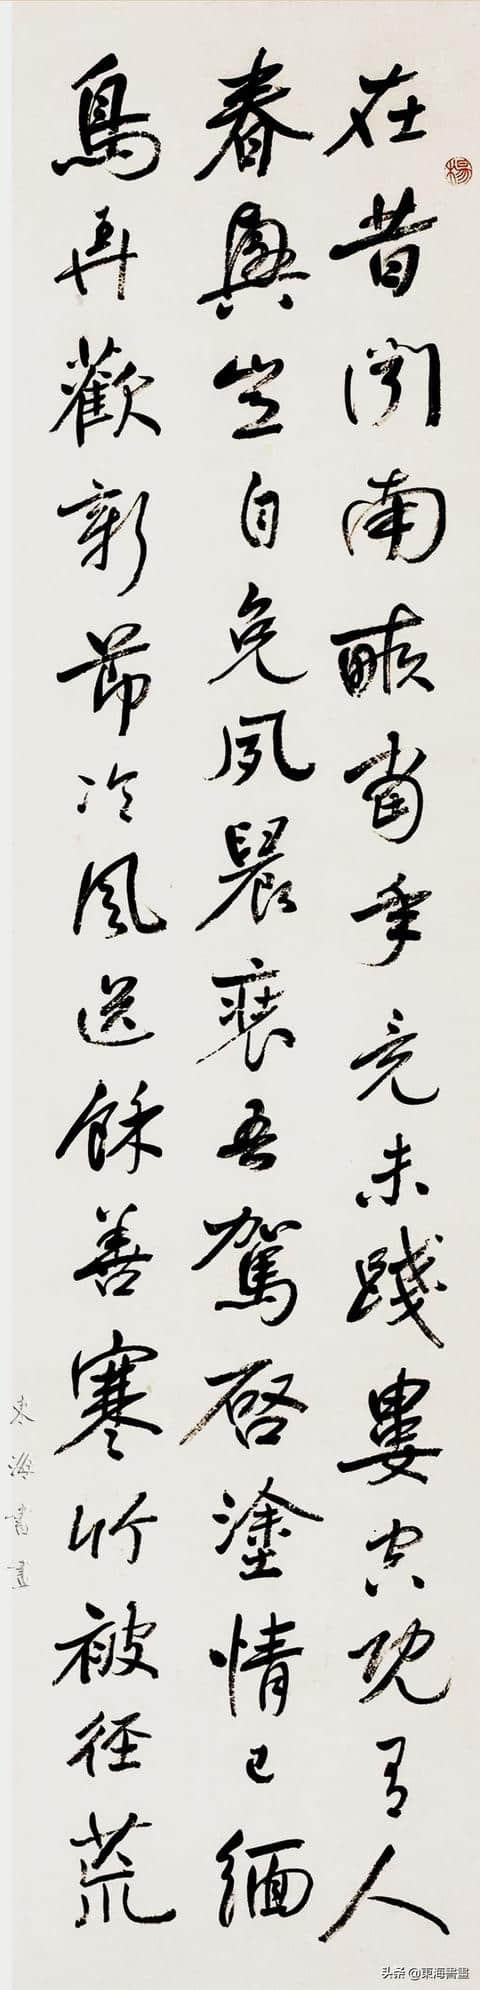 楊
在昔聞南畝當年竟未踐屢空既有人
春興豈自免夙晨裝吾駕啓塗情已緬
鳥弄歡新節冷風送餘善寒竹被徑荒
東海書畫
头条 @東海書畫